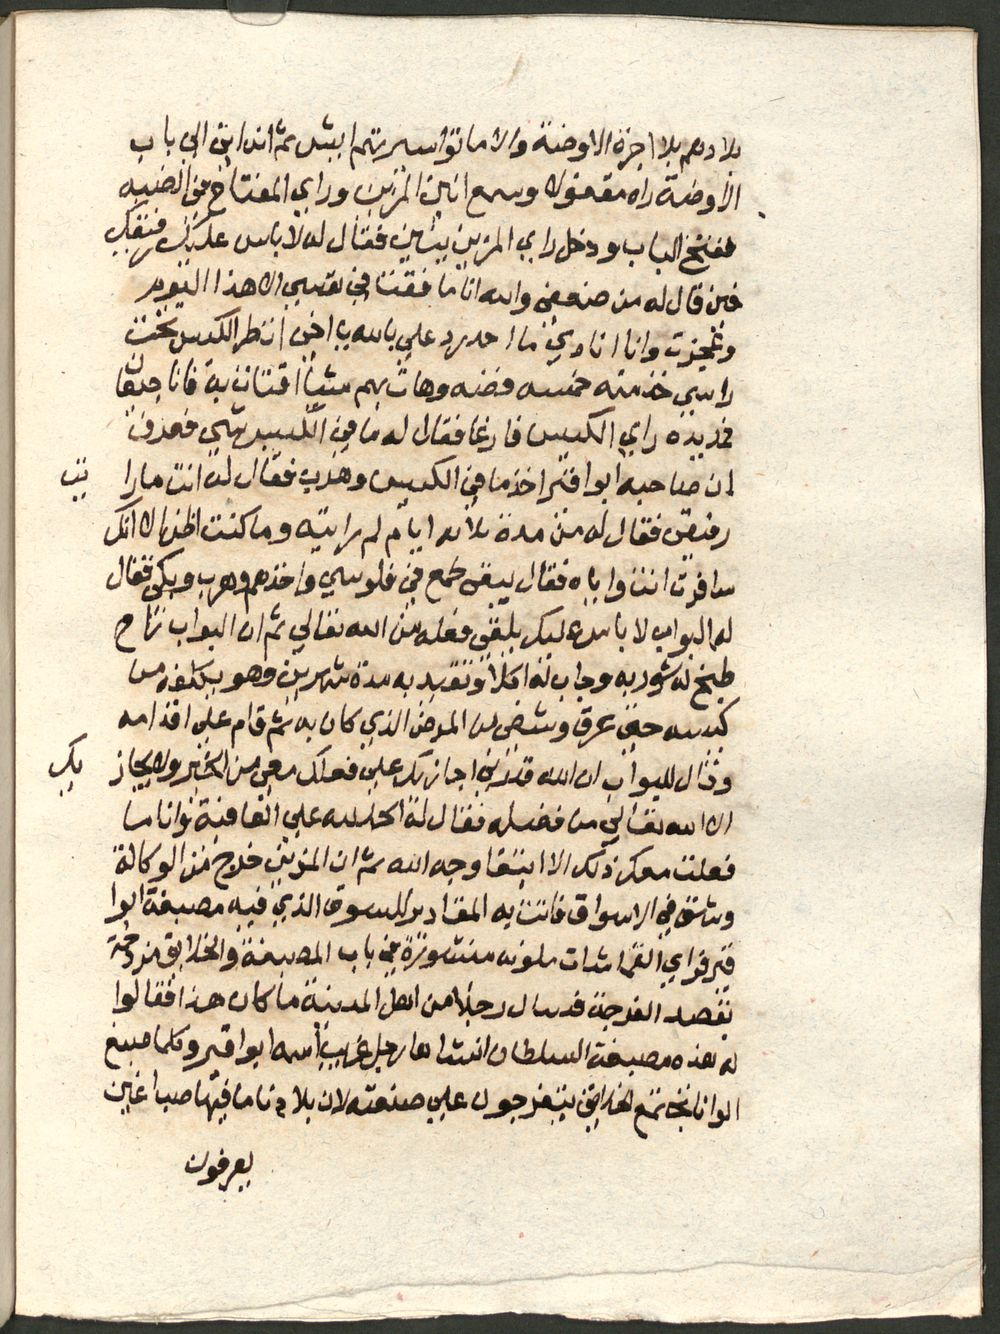 بلا دهم بلا اجرة الاوضة والا ماتوا سيرتهم ايش ثم انه اتى الى باب
الاوضة راه مقفوله وسمع انين المزين وراي المفتاح في الضبه
ففتح الباب ودخل راي المزين ييأين فقال له لا باس عليك فين رفيقك
فين قال له من ضعفي والله انا ما فقت في نفسي الا هذا اليوم
وعجزت وانا انادي ما احد يرد علي بالله يا اخي انظر الكيس تحت
راسي خذ منه خمسه فضه وهات بهم شيأ اقتات به فانا جيعان
فمد يده راي الكيس فارغا فقال له ما في الكيس شي فعرف
ان صاحبه ابوا قير اخذ ما في الكيس وهرب فقال له انت ما را يت
رفيقي فقال له من مدة ثلاثه ايام لم رايته وما كنت اظن الا انك
سافرت انت واياه فقال يبقى طمع في فلوسي واخذهم وهرب وبكى فقال
له البواب لا باس عليك يلقى فعله من الله تعالي ثم ان البواب راح
طبخ له شوربه وجاب له اكلا وتقيد به مدة شهرين وهو يكلفه من
كيسه حتى عرق وشفي من المرض الذي كان به ثم قام علي اقدامه
وقال للبواب ان الله قدرني اجازيك علي فعلك معي من الخير ولا يجاز يك
الا الله تعالي من فضله فقال له الحمد لله علي العافية وانا ما
فعلت معك ذلك الا ابتغا وجه الله ثم ان المزين خرج من الوكالة
وشق في الاسواق فاتت به المقادير للسوق الذي فيه مصبغة ابوا
قير فراي القماشات ملونه منشورة في باب المصبغة والخلايق مزدحمة
بقصد الفرجة فسال رجلا من اهل المدينة ما كان هذا فقالوا
له هذه مصبغة السلطان انشاها رجل غريب اسمه ابوا قير وكلما صبغ
الوانا تجتمع الخلايق يتفرجون علي صنعته لان بلادنا ما فيها صباغين
يعرفون